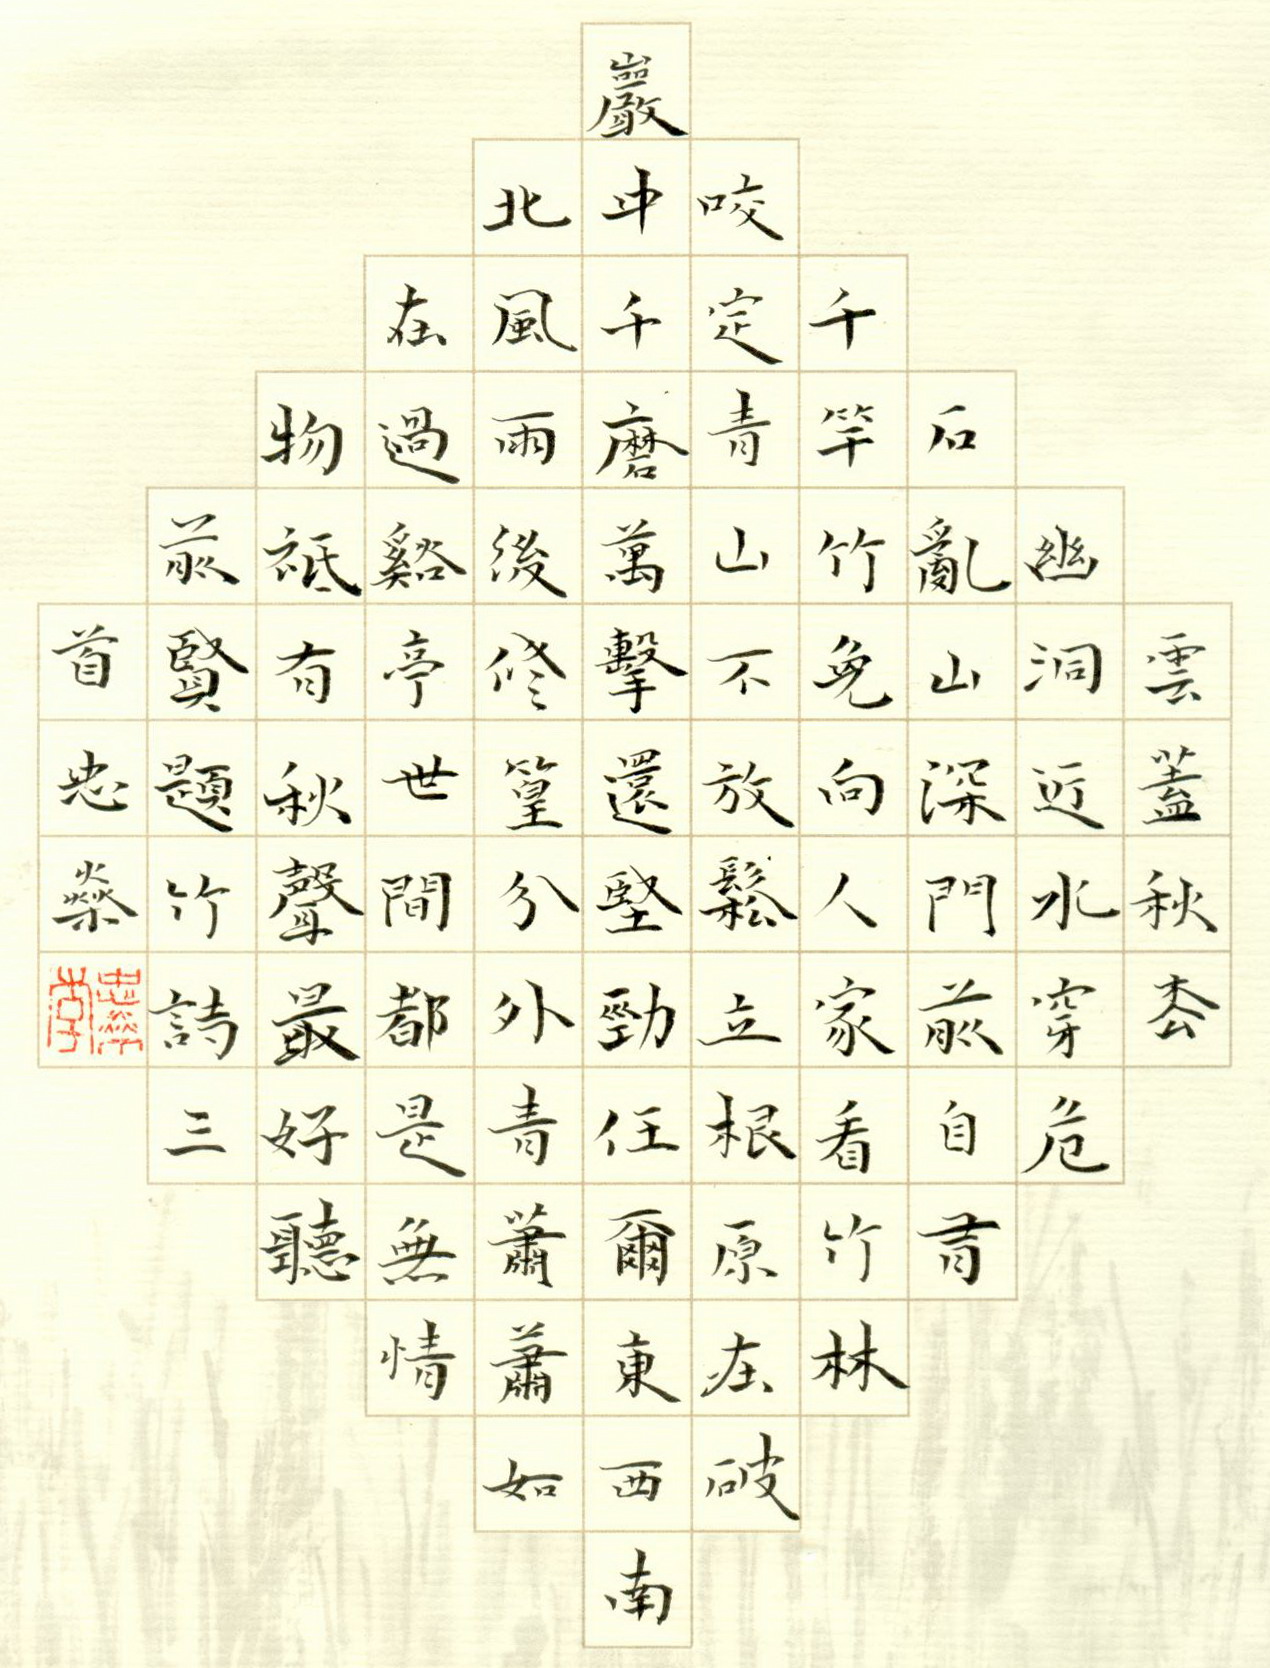 雲蓋秋枩
幽洞近水穿危
石亂山深門前自有
千竿竹免向人家看竹林
咬定青山不放鬆立根原在破
巖中千磨萬擊還堅勁任爾東西南
北風雨後修篁分外青蕭蕭如
在過谿亭世間都是無情
物祇有秋聲最好聽
前賢題竹詩三
首忠燊